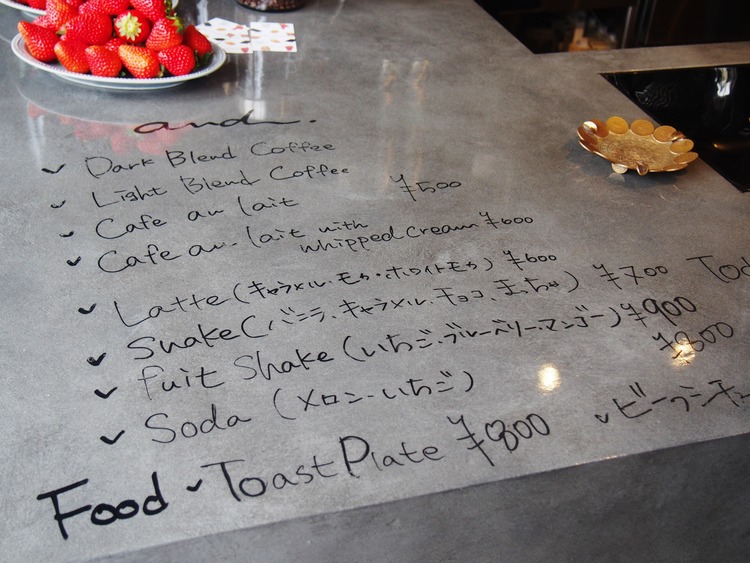 and.
✓ Dark Blend Coffee
✓ Light Blend Coffee
✓ Cafe au lait ¥500
✓ Cafe au lait with whipped cream ¥600
✓ Latte (キャラメル・モカ・ホワイトモカ) ¥600
✓ Shake (バニラ、キャラメル、チョコ、まっちゃ) ¥700
✓ Fuit Shake (いちご、ブルーベリー、マンゴー) ¥900
✓ Soda (メロン・いちご) ¥800
Food ✓ Toast Plate ¥800 ✓ ビーフシチュ
Tod